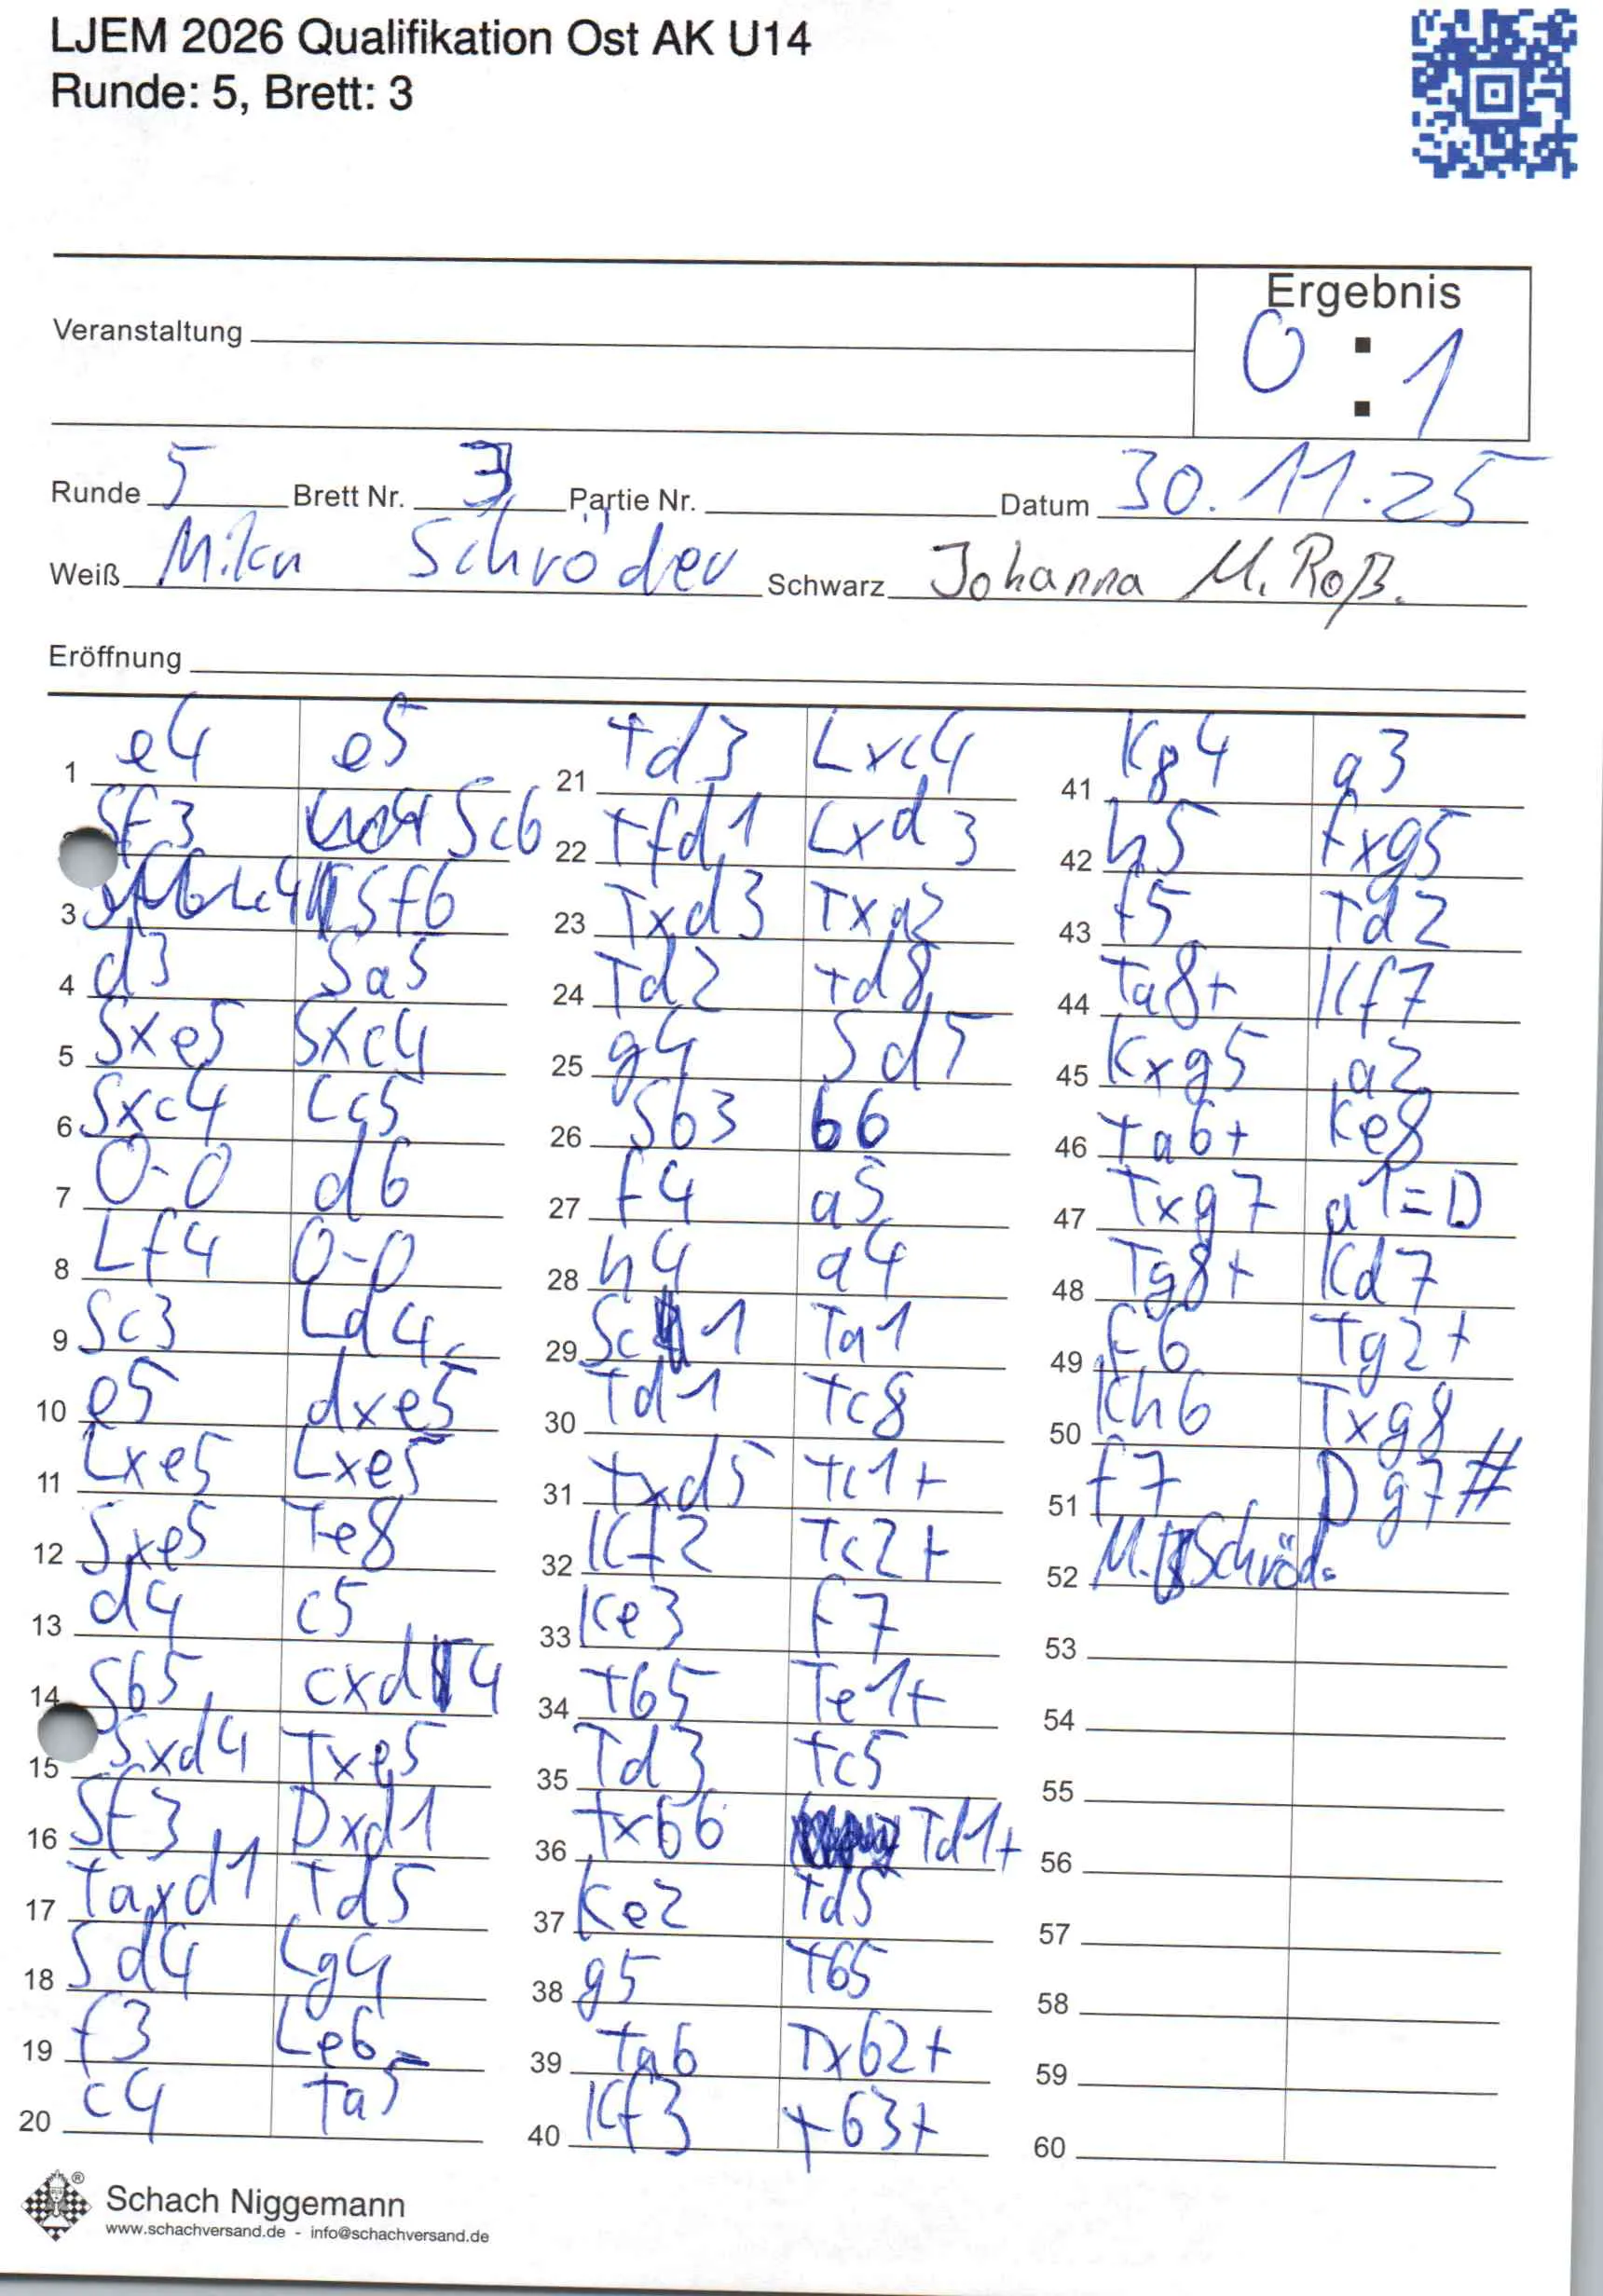 LJEM 2026 Qualifikation Ost AK U14
Runde: 5, Brett: 3
Ergebnis
0 : 1
Veranstaltung
Runde 5 Brett Nr. 3 Partie Nr. Datum 30.11.25
Weiß Mika Schröder Schwarz Johanna M. Roß.
Eröffnung
1 e4 e5
Sf3 Sc6
3 Lc4 Sf6
4 d3 Sa5
5 Sxe5 Sxc4
6 Sxc4 Lc5
7 0-0 d6
8 Lf4 0-0
9 Sc3 Ld4
10 e5 dxe5
11 Lxe5 Lxe5
12 Sxe5 Te8
13 d4 c5
14 Sb5 cxd4
15 Sxd4 Txe5
16 Sf3 Dxd1
17 Taxd1 Td5
18 Sd4 Lg4
19 f3 Le6
20 c4 Ta5
21 Td3 Lxc4
22 Tfd1 Lxd3
23 Txd3 Txa2
24 Td2 Td8
25 g4 Sd5
26 Sb3 b6
27 f4 a5
28 h4 a4
29 Sc1 Ta1
30 Td1 Tc8
31 Txd5 Tc1+
32 Kf2 Tc2+
33 Ke3 f7
34 Tb5 Te1+
35 Td3 Tc5
36 Txb6 Td1+
37 Ke2 Td5
38 g5 Tb5
39 Ta6 Txb2+
40 Kf3 Tb3+
41 Kg4 a3
42 h5 fxg5
43 f5 Td2
44 Ta8+ Kf7
45 Kxg5 a2
46 Ta6+ Ke8
47 Txg7 a1=D
48 Tg8+ Kd7
49 f6 Tg2+
50 Kh6 Txg8
51 f7 Dg7#
52 M. Schröd.
53
54
55
56
57
58
59
60
® Schach Niggemann
www.schachversand.de - info@schachversand.de